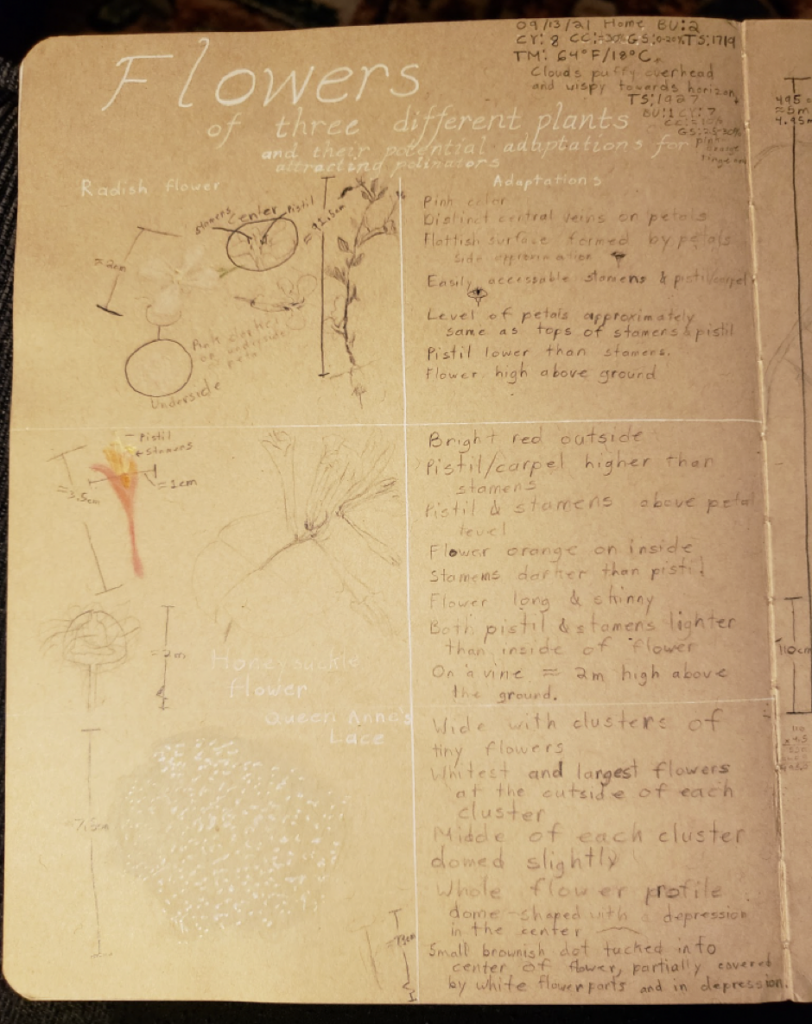 09/13/21 Home BU:2
CY: 8 CC:≈30% GS:0-20% TS:1719
TM: 64°F/18°C
Clouds puffy overhead
and wispy towards horizon
TS:1927
BU:1 CY:7
Flowers
of three different plants
and their potential adaptations for
attracting polinators
Radish flower
stamens
Center
Pistil
≈2cm
≈92.5cm
Pink
underside
Underside
Adaptations
Pink color
Distinct central veins on petals
Flattish surface formed by petals
side approximation
Easily accessable stamens &
Level of petals approximately
same as tops of stamens & pistil
Pistil lower than stamens.
Flower high above ground
Pistil
Stamens
≈3.5cm
≈1cm
≈2cm
Honeysuckle
flower
Bright red outside
Pistil/carpel higher than
stamens
Pistil & stamens above petal
level
Flower orange on inside
Stamems darker than pistil
Flower long & skinny
Both pistil & stamens lighter
than inside of flower
On a vine ≈ 2m high above
the ground.
Queen Anne's
Lace
≈7.5cm
Wide with clusters of
tiny flowers
Whitest and largest flowers
at the outside of each
cluster
Middle of each cluster
domed slightly
Whole flower profile
dome-shaped with a depression
in the center
Small brownish dot tucked into
center of flower, partially covered
by white flowerparts and in depression.
495
≈5m
4.95m
110cm